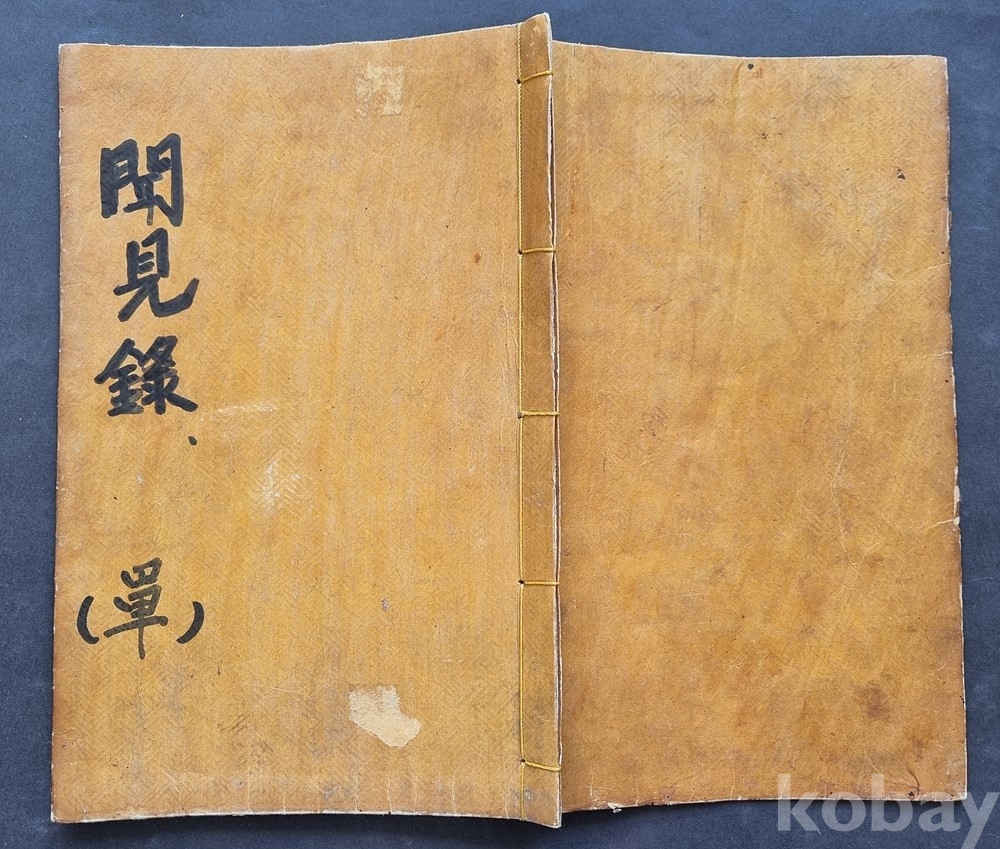 聞見錄
(單)
kobay